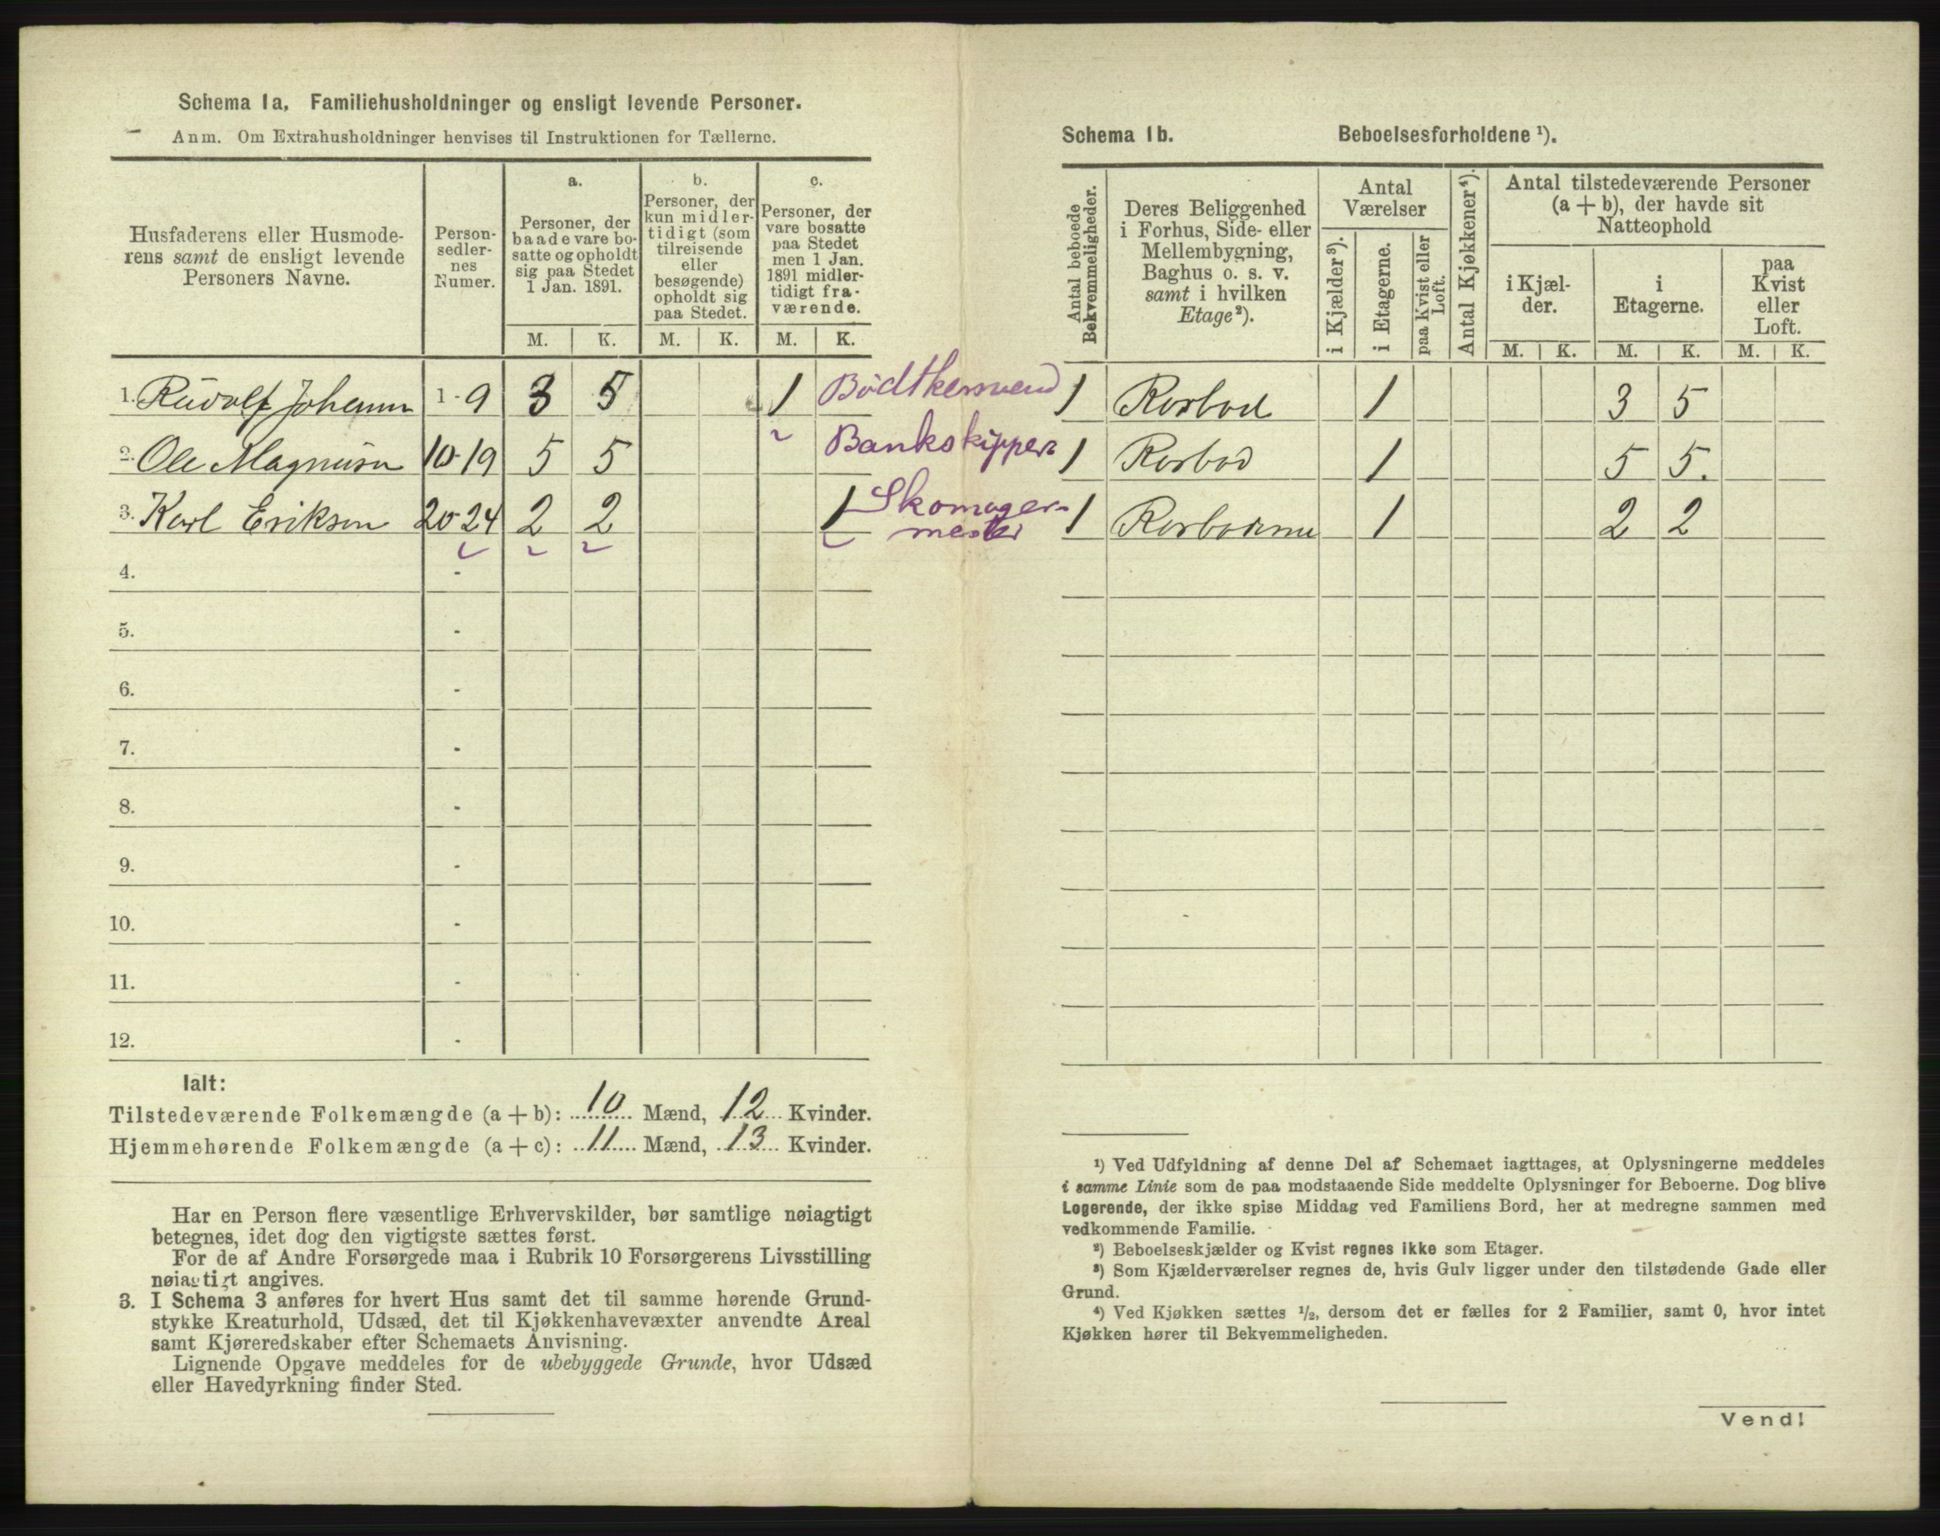 Schema 1a. Familiehusholdninger og ensligt levende Personer.
Anm. Om Extrahusholdninger henvises til Instruktionen for Tællerne.
Husfaderens eller Husmode-
rens samt de ensligt levende
Personers Navne.
Person-
sedler-
nes
Numer.
a.
Personer, der
baade vare bo-
satte og opholdt
sig paa Stedet
1 Jan. 1891.
b.
Personer, der
kun midler-
tidigt (som
tilreisende
eller
besøgende)
opholdt sig
paa Stedet.
c.
Personer, der
vare bosatte
paa Stedet
men 1 Jan.
1891 midler-
tidigt fra-
værende.
M. K. M. K. M. K.
1. Rudolf Johann 1-9 3 5 1 Bødtkersvend
2. Ole Magnusen 10-19 5 5 Bankskipper
3. Karl Eriksen 20-24 2 2 1 Skomager-
mester
4. -
5. -
6. -
7. -
8. -
9. -
10. -
11. -
12. -
Ialt:
Tilstedeværende Folkemængde (a+b): 10 Mænd, 12 Kvinder.
Hjemmehørende Folkemængde (a+c): 11 Mænd, 13 Kvinder.
Har en Person flere væsentlige Erhvervskilder, bør samtlige nøiagtigt
betegnes, idet dog den vigtigste sættes først.
For de af Andre Forsørgede maa i Rubrik 10 Forsørgerens Livsstilling
nøiagtigt angives.
3. I Schema 3 anføres for hvert Hus samt det til samme hørende Grund-
stykke Kreaturhold, Udsæd, det til Kjøkkenhavevæxter anvendte Areal
samt Kjøreredskaber efter Schemaets Anvisning.
Lignende Opgave meddeles for de ubebyggede Grunde, hvor Udsæd
eller Havedyrkning finder Sted.
Schema 1b. Beboelsesforholdene ¹).
Antal beboede
Bekvemmeligheder.
Deres Beliggenhed
i Forhus, Side- eller
Mellembygning,
Baghus o. s. v.
samt i hvilken
Etage²).
Antal
Værelser
i Kjælder³).
i Etagerne.
paa Kvist eller
Loft.
Antal Kjøkkener⁴).
Antal tilstedeværende Personer
(a + b), der havde sit
Natteophold
i Kjæl-
der.
i
Etagerne.
paa
Kvist
eller
Loft.
M. K. M. K. M. K.
1 Rorbod 1 3 5
1 Rorbod 1 5 5.
1 1 2 2
¹) Ved Udfyldning af denne Del af Schemaet iagttages, at Oplysningerne meddeles
i samme Linie som de paa modstaaende Side meddelte Oplysninger for Beboerne. Dog blive
Logerende, der ikke spise Middag ved Familiens Bord, her at medregne sammen med
vedkommende Familie.
²) Beboelseskjælder og Kvist regnes ikke som Etager.
³) Som Kjælderværelser regnes de, hvis Gulv ligger under den tilstødende Gade eller
Grund.
⁴) Ved Kjøkken sættes ½, dersom det er fælles for 2 Familier, samt 0, hvor intet
Kjøkken hører til Bekvemmeligheden.
Vend!